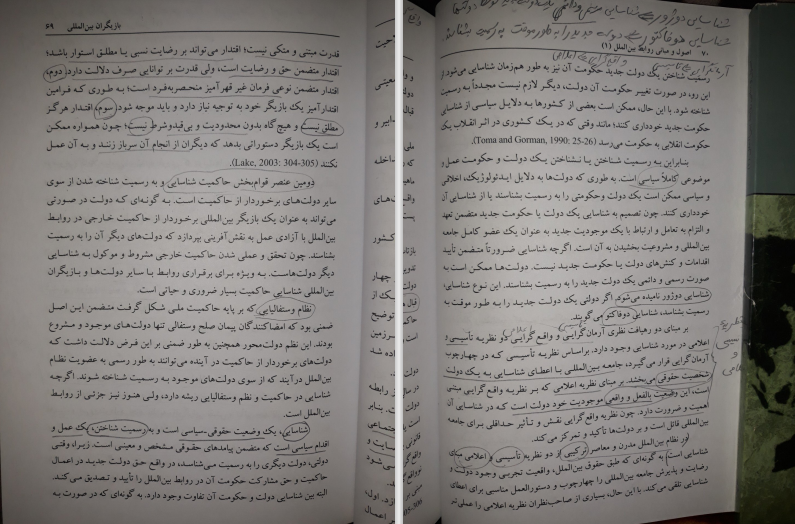 بازیگران بین‌المللی ۶۹
قدرت مبتنی و متکی نیست؛ اقتدار می‌تواند بر رضایت نسبی یا مطلق استوار باشد؛
اقتدار متضمن حق و رضایت است، ولی قدرت بر توانایی صرف دلالت دارد. دوم،
اقتدار متضمن نوعی فرمان غیر قهرآمیز منحصربه‌فرد است؛ به طوری که فرامین
اقتدارآمیز یک بازیگر خود به توجیه نیاز دارد و باید موجه شود. سوم، اقتدار هرگز
مطلق نیست و هیچ گاه بدون محدودیت و بی‌قیدوشرط نیست؛ چون همواره ممکن
است یک بازیگر دستوراتی بدهد که دیگران از انجام آن سرباز زنند و به آن عمل
نکنند (Lake, 2003: 304-305).
دومین عنصر قوام‌بخش حاکمیت شناسایی و به رسمیت شناخته شدن از سوی
سایر دولت‌های برخوردار از حاکمیت است. به گونه‌ای که دولت در صورتی
می‌تواند به عنوان یک بازیگر بین‌المللی برخوردار از حاکمیت خارجی در روابط
بین‌الملل با آزادی عمل به نقش‌آفرینی بپردازد که دولت‌های دیگر آن را به رسمیت
بشناسند. چون تحقق و عملی شدن حاکمیت خارجی مشروط و موکول به شناسایی
دیگر دولت‌هاست. به ویژه برای برقراری روابط با سایر دولت‌ها و بازیگران
بین‌المللی شناسایی حاکمیت بسیار ضروری و حیاتی است.
نظام وستفالیایی که بر پایه حاکمیت ملی شکل گرفت متضمن این اصل
ضمنی بود که امضاکنندگان پیمان صلح وستفالی تنها دولت‌های موجود و مشروع
بودند. این نظم دولت‌محور همچنین به طور ضمنی بر این فرض دلالت داشت که
دولت‌های برخوردار از حاکمیت در آینده می‌توانند به طور رسمی به عضویت نظام
بین‌الملل درآیند که از سوی دولت‌های موجود به رسمیت شناخته شوند. اگرچه
شناسایی در حاکمیت و نظم وستفالیایی ریشه دارد، ولی هنوز نیز جزئی از روابط
بین‌الملل است.
شناسایی، یک وضعیت حقوقی-سیاسی است و به رسمیت شناختن، یک عمل و
اقدام سیاسی است که متضمن پیامدهای حقوقی مشخص و معینی است. زیرا، وقتی
دولتی، دولت دیگری را به رسمیت می‌شناسد، در واقع حق دولت جدید در اعمال
حاکمیت و حق مشارکت حکومت آن در روابط بین‌الملل را تأیید و تصدیق می‌کند.
البته بین شناسایی دولت و حکومت آن تفاوت وجود دارد. به گونه‌ای که در صورت به
۷۰ اصول و مبانی روابط بین‌الملل (۱)
رسمیت شناختن یک دولت جدید حکومت آن نیز به طور هم‌زمان شناسایی می‌شود. از
این رو، در صورت تغییر حکومت آن دولت، دیگر لازم نیست مجدداً به رسمیت
شناخته شود. با این حال، ممکن است بعضی از کشورها به دلایل سیاسی از شناسایی
حکومت جدید خودداری کنند؛ مانند وقتی که در یک کشوری در اثر انقلاب یک
حکومت انقلابی به حکومت می‌رسد (Toma and Gorman, 1990: 25-26).
بنابراین به رسمیت شناختن یا نشناختن یک دولت و حکومت عمل و
موضوعی کاملاً سیاسی است. به طوری که دولت‌ها به دلایل ایدئولوژیک، اخلاقی
و سیاسی ممکن است یک دولت وحکومتی را به رسمیت بشناسند یا از شناسایی آن
خودداری کنند. چون تصمیم به شناسایی یک دولت یا حکومت جدید متضمن تعهد
و التزام به تعامل و ارتباط با یک موجودیت جدید به عنوان یک عضو کامل جامعه
بین‌المللی و مشروعیت بخشیدن به آن است. اگرچه شناسایی ضرورتاً متضمن تأیید
اقدامات و کنش‌های دولت یا حکومت جدید نیست. دولت‌ها ممکن است به
صورت رسمی و دائمی یک دولت جدید را به رسمیت بشناسند. این نوع شناسایی،
شناسایی دوژور نامیده می‌شود. اگر دولتی یک دولت جدید را به طور موقت به
رسمیت بشناسد، شناسایی دوفاکتو می‌گویند.
بر مبنای دو رهیافت نظری آرمان‌گرایی و واقع گرایی دو نظریه تأسیسی و
اعلامی در مورد شناسایی وجود دارد. براساس نظریه تأسیسی که در چهارچوب
آرمان‌گرایی قرار می‌گیرد، جامعه بین‌المللی با اعطای شناسایی به یک دولت
شخصیت حقوقی می‌بخشد. بر مبنای نظریه اعلامی که بر نظریه واقع گرایی مبتنی
است، این وضعیت بالفعل و واقعی موجودیت خود دولت است که در شناسایی آن
اهمیت و ضرورت دارد. چون نظریه واقع گرایی نقش و تأثیر حداقلی برای جامعه
بین‌المللی قائل است و بر دولت‌ها تأکید و تمرکز می‌کند.
در نظام بین‌الملل مدرن و معاصر ترکیبی از دو نظریه تأسیسی و اعلامی مبنای
شناسایی است؛ به گونه‌ای که طبق حقوق بین‌الملل، واقعیت تجربی وجود دولت و
رضایت و پذیرش جامعه بین‌المللی را چهارچوب و دستورالعمل مناسبی برای اعطای
شناسایی تلقی می‌کند. با این حال، بسیاری از صاحب‌نظران نظریه اعلامی را عملی‌تر